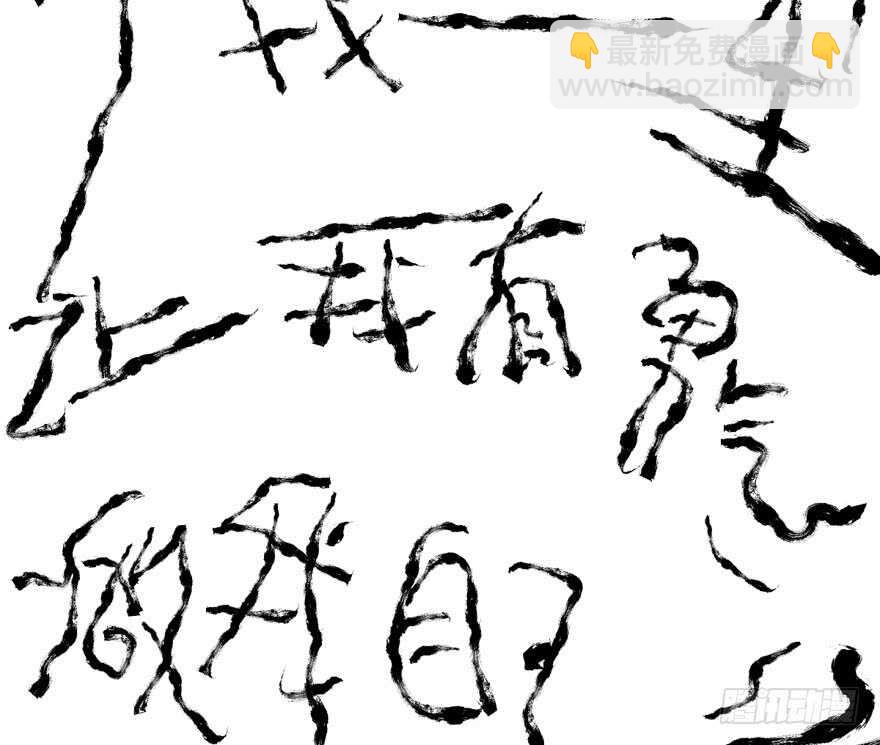 一生
👇最新免费漫画👇
www.baozimh.com
让我有勇气
做我自己
腾讯动漫